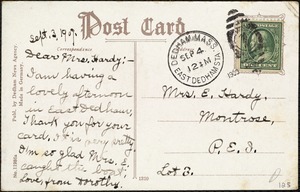 Post Card
Sept. 3, 1909.
Correspondence
Dear Mrs. Hardy:-
I am having a
lovely afternoon
in East Dedham,
Thank you for your
card, it is very pretty
I'm so glad Mrs. E.
caught the boat.
Love, from Dorothy.
DEDHAM, MASS.
SEP 4
12 M
EAST DEDHAM STA.
Mrs. E. Hardy.
Montrose,
P. E. I.
Lot 3.
Publ. by Dedham News Agency.
Made in Germany.